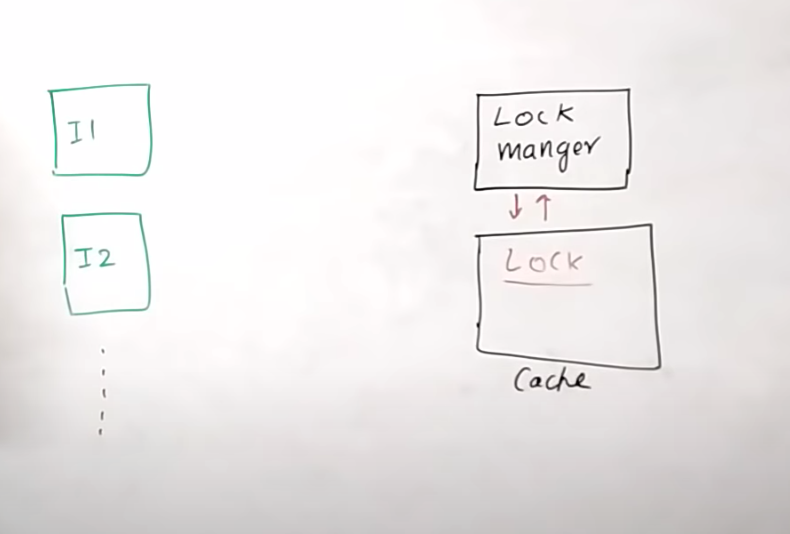 I1
Lock
manger
I2
Lock
Cache